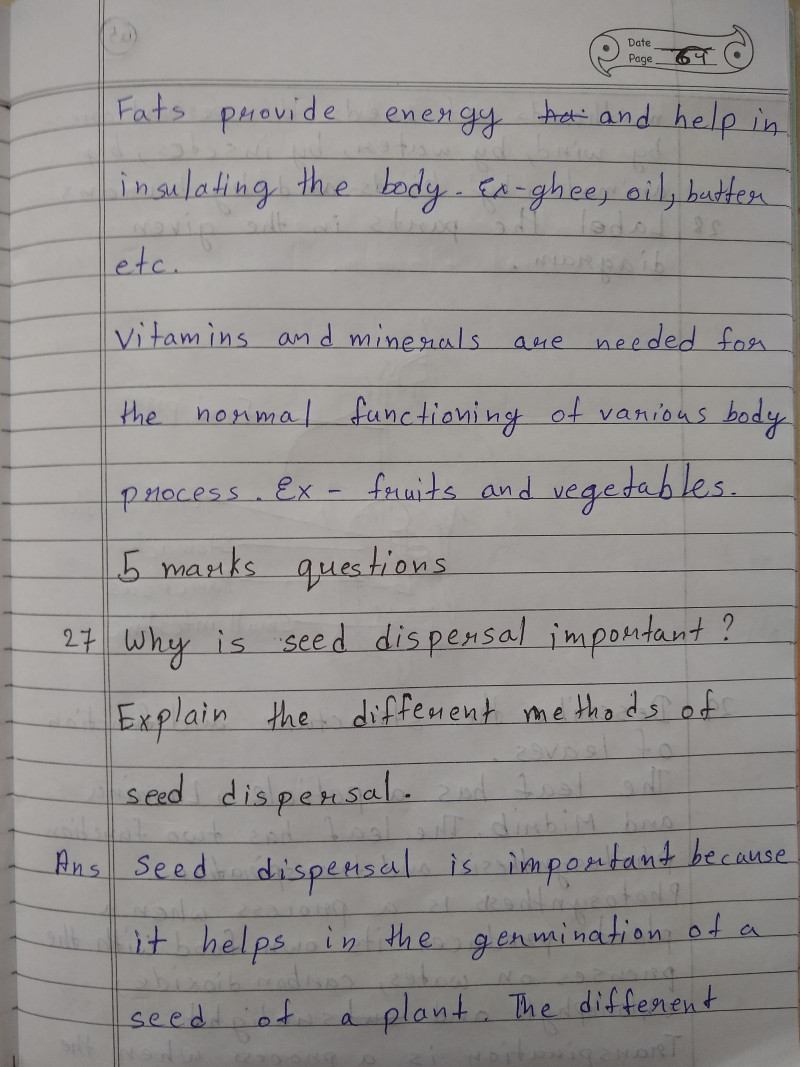 Date
Page 64
Fats provide energy and help in
insulating the body. Ex-ghee, oil, butter
etc.
Vitamins and minerals are needed for
the normal functioning of various body
process. Ex - fruits and vegetables.
5 marks questions
27 Why is seed dispersal important?
Explain the different methods of
seed dispersal.
Ans Seed dispersal is important because
it helps in the germination of a
seed of a plant. The different